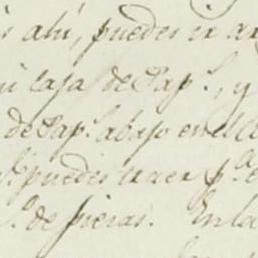 s ahi, puedes ir a
caja de Pap.l, y
de Pap.l abajo en el
puedes traer p.a
de pieras. En la